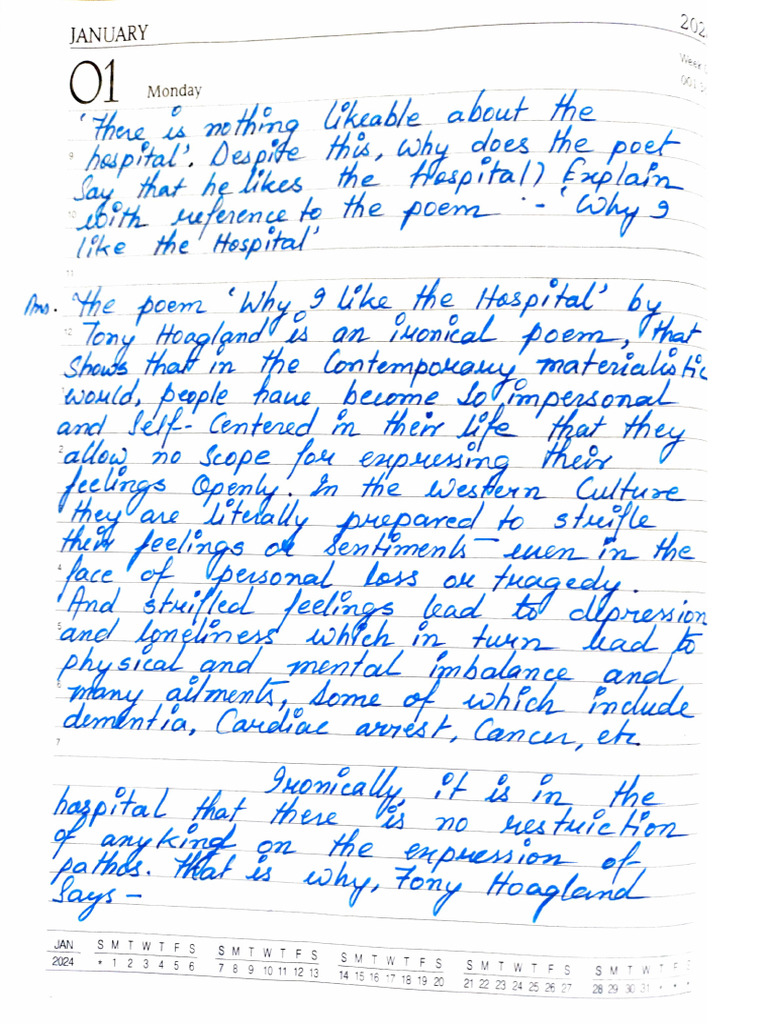 JANUARY 202
01 Monday Week
001
'There is nothing likeable about the
9 hospital'. Despite this, why does the poet
say that he likes the Hospital) Explain
10 with reference to the poem :- 'Why I
like the Hospital'
11
Ans. The poem 'Why I like the Hospital' by
12 Tony Hoagland is an ironical poem, that
shows that in the Contemporary materialistic
world, people have become so impersonal
and self-Centered in their life that they
allow no scope for expressing their
feelings Openly. In the western Culture
they are literally prepared to strifle
their feelings or sentiments - even in the
4 face of personal loss or tragedy.
And strifled feelings lead to depression
5 and loneliness which in turn lead to
physical and mental imbalance and
6 many ailments, some of which include
dementia, Cardiac arrest, Cancer, etc.
7
Ironically, it is in the
hospital that there is no restriction
of anykind on the expression of
pathos. That is why, Tony Hoagland
says -
JAN S M T W T F S S M T W T F S S M T W T F S S M T W T F S S M T W T F S
2024 * 1 2 3 4 5 6 7 8 9 10 11 12 13 14 15 16 17 18 19 20 21 22 23 24 25 26 27 28 29 30 31 * * *